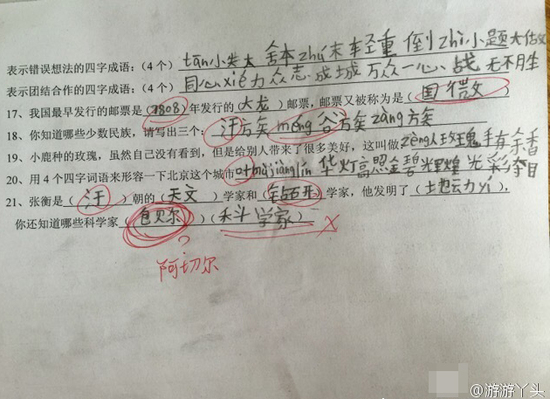 表示错误想法的四字成语：（4个）tān小失大 舍本zhú末 轻重倒zhì 小题大估
表示团结合作的四字成语：（4个）同心xié力 众志成城 万众一心 战无不月生
17、我国最早发行的邮票是（1808）年发行的（大龙）邮票，邮票又被称为是（国 ）
18、你知道哪些少数民族，请写出三个：汗方矣 měng谷方矣 zàng方矣
19、小鹿种的玫瑰，虽然自己没有看到，但是给别人带来了很多美好，这叫做zèng人玫瑰手有余香
20、用4个四字词语来形容一下北京这个城市 华灯高照 金碧光煌 光彩夺目
21、张衡是（汗）朝的（天文）学家和（ ）学家，他发明了（土也云力yí）.
你还知道哪些科学家（包贝尔）（禾斗学家）
?
阿切尔
@游游丫头